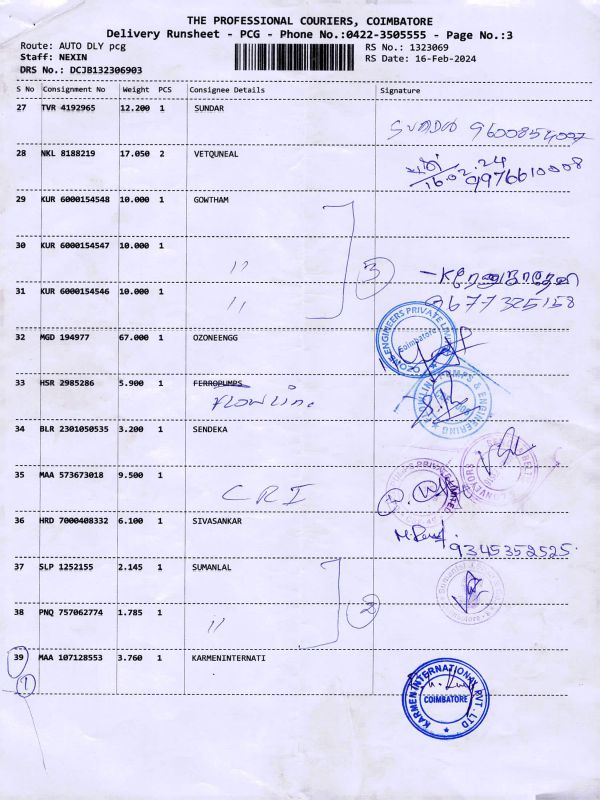 THE PROFESSIONAL COURIERS, COIMBATORE
Delivery Runsheet - PCG - Phone No.:0422-3505555 - Page No.:3
Route: AUTO DLY pcg RS No.: 1323069
Staff: NEXIN RS Date: 16-Feb-2024
DRS No.: DCJB132306903
S No Consignment No Weight PCS Consignee Details Signature
27 TVR 4192965 12.200 1 SUNDAR
9600854007
28 NKL 8188219 17.050 2 VETQUNEAL
16.02.24 9976610008
29 KUR 6000154548 10.000 1 GOWTHAM
30 KUR 6000154547 10.000 1 "
3
31 KUR 6000154546 10.000 1 "
9677325158
32 MGD 194977 67.000 1 OZONEENGG
ENGINEERS PRIVATE
Coimbatore
33 HSR 2985286 5.900 1 FERROPUMPS
Flowline
PUMPS & ENGINEERING
34 BLR 2301050535 3.200 1 SENDEKA
35 MAA 573673018 9.500 1
CRI
PUMPS PRIVATE LIMITED
36 HRD 7000408332 6.100 1 SIVASANKAR
9345352525
37 SLP 1252155 2.145 1 SUMANLAL
38 PNQ 757062774 1.785 1 "
2
39 MAA 107128553 3.760 1 KARMENINTERNATI
1
KARMEN INTERNATIONAL PVT. LTD
COIMBATORE